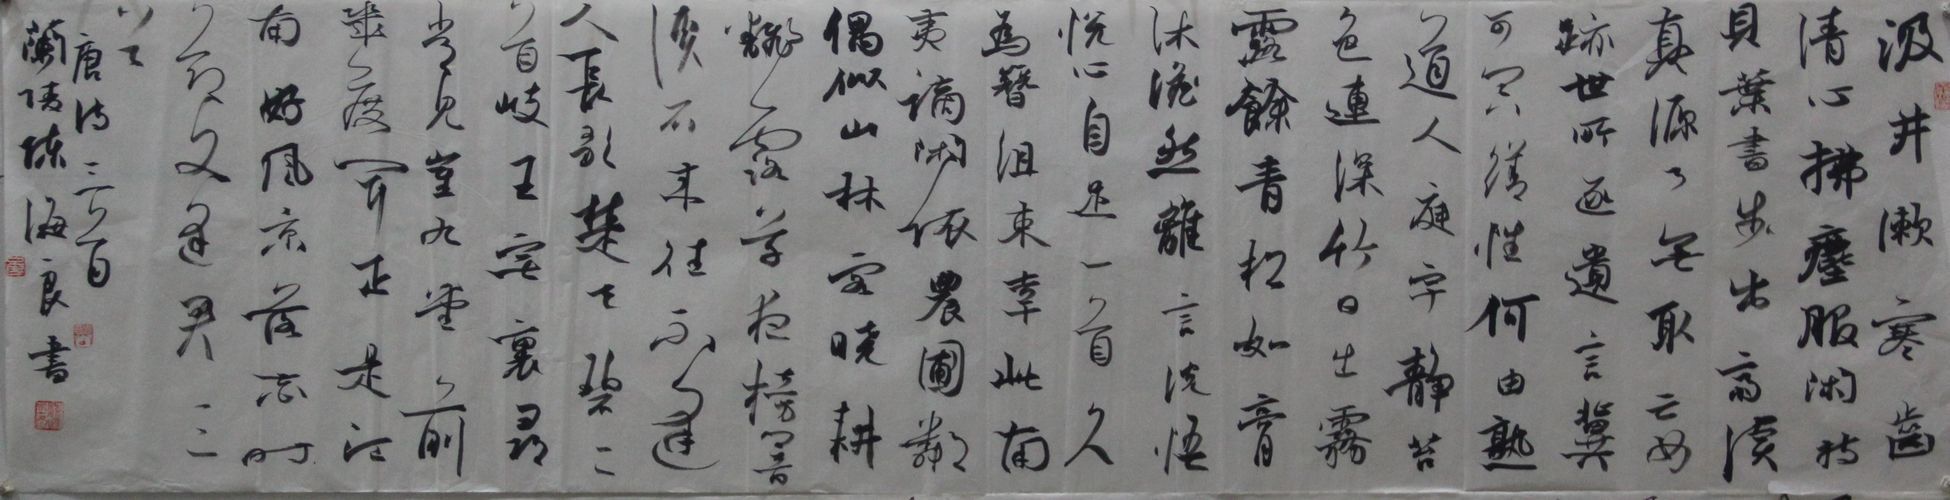 汲井漱寒齒
清心拂塵服閑持
貝葉書步出齋讀
真源了無取妄
跡世所逐遺言冀
可冥繕性何由熟
道人庭宇靜苔
色連深竹日出霧
露餘青松如膏
沐澹然離言說悟
悅心自足一首久
為簪組束幸此南
夷謫閑依農圃鄰
偶似山林客曉耕
翻露草夜榜響
溪石來往不逢
人長歌楚天碧二
首岐王宅裏尋
常見崔九堂前
幾度聞正是江
南好風景落花時
節又逢君三
唐詩三首
蘭陵陳海良書